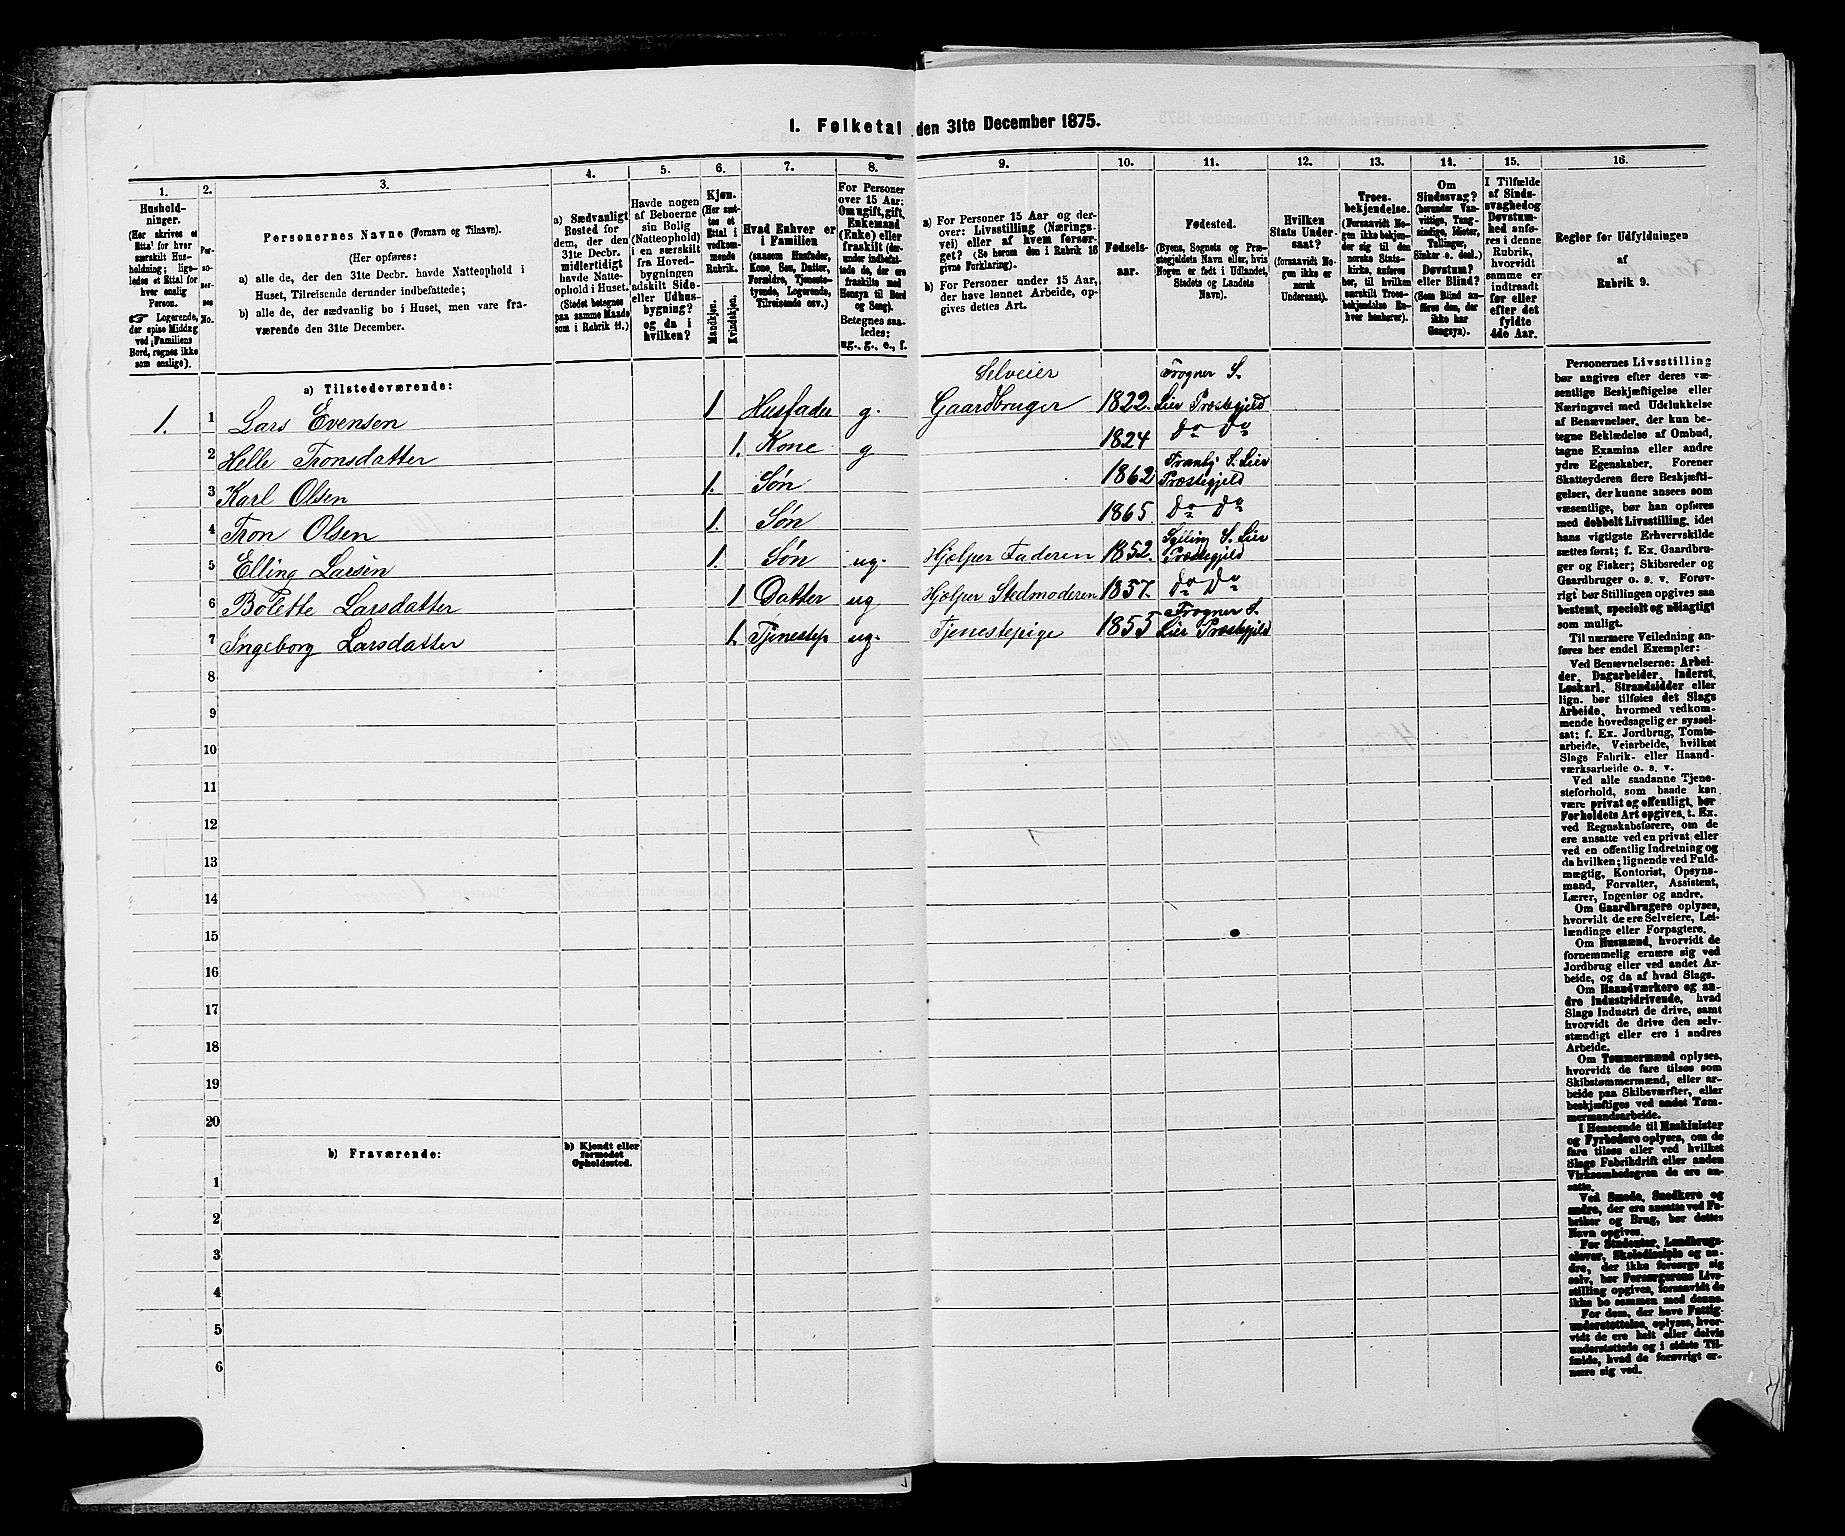 1. Folketal den 31te December 1875.
1. 2. 3. 4. 5. 6. 7. 8. 9. 10. 11. 12. 13. 14. 15. 16.
Hushold-
ninger.
(Her skrives et
Ettal for hver
særskilt Hus-
holdning; lige-
ledes et Ettal for
hver enslig
Person.
☞ Logerende,
der spise Middag
ved Familiens
Bord, regnes ikke
som enslige).
Per-
so-
ner-
nes
No.
Personernes Navne (Fornavn og Tilnavn).
(Her opføres:
a) alle de, der den 31te Decbr. havde Natteophold i
Huset, Tilreisende derunder indbefattede;
b) alle de, der sædvanlig bo i Huset, men vare fra-
værende den 31te December.
a) Sædvanligt
Bosted for
dem, der den
31te Decbr.
midlertidigt
havde Natte-
ophold i Huset.
(Stedet betegnes
paa samme Maade
som i Rubrik 11.)
Havde nogen
af Beboerne
sin Bolig
(Natteophold)
i en særskilt
fra Hoved-
bygningen
adskilt Side-
eller Udhus-
bygning?
og da i
hvilken?
Kjøn.
(Her sæt-
tes et
Ettal i
vedkom-
mende
Rubrik.
Mandkjøn.
Kvindekjøn.
Hvad Enhver er
i Familien
(saasom Husfader,
Kone, Søn, Datter,
Forældre, Tjeneste-
tyende, Logerende,
Tilreisende osv.)
For Personer
over 15 Aar:
Om ugift, gift,
Enkemand
(Enke) eller
fraskilt (der-
under indbefat-
tede de, der ere
fraskilte med
Hensyn til Bord
og Seng).
Betegnes saa-
ledes:
ug., g., e., f.
a) For Personer 15 Aar og der-
over: Livsstilling (Nærings-
vei) eller af hvem forsør-
get? (Se herom den i Rubrik 16
givne Forklaring).
b) For Personer under 15 Aar,
der have lønnet Arbeide, op-
gives dettes Art.
Fødsels-
aar.
Fødested.
(Byens, Sognets og Præ-
stegjeldets Navn eller, hvis
Nogen er født i Udlandet,
Stedets og Landets
Navn).
Hvilken
Stats Under-
saat?
(forsaavidt No-
gen ikke er
norsk
Undersaat).
Troes-
bekjendelse.
(Forsaavidt No-
gen ikke bekjen-
der sig til den
norske Stats-
kirke, anføres
her, til hvilken
særskilt Troes-
bekjendelse En-
hver henhører).
Om
Sindssvag?
(herunder Van-
vittige, Tung-
sindige, Idioter,
Tullinger,
Sinker o. desl.)
Døvstum?
eller Blind?
(Som Blind an-
føres den, der
ikke har
Gangsyn).
I Tilfælde
af Sinds-
svaghed og
Døvstum-
hed anfø-
res i denne
Rubrik,
hvorvidt
samme er
indtraadt
før eller
efter det
fyldte
4de Aar.
Regler for Udfyldningen
af
Rubrik 9.
a) Tilstedeværende:
1. 1 Lars Evensen 1 Husfader g. Selveier Gaardbruger 1822. Frogner S. Lier Præstegjeld
2 Helle Tronsdatter 1. Kone g 1824 Do Do
3 Karl Olsen 1. Søn 1862 Tranby S. Lier Præstegjeld
4 Tron Olsen 1. Søn 1865 Do Do
5 Elling Larsen 1. Søn ug. Hjælper Faderen 1852. Sylling S. Lier Præstegjeld
6 Bolette Larsdatter 1 Datter ug Hjælper Stedmoderen 1857. Do Do
7 Ingeborg Larsdatter 1. Tjenestep ug. Tjenestepige 1855 Frogner S. Lier Præstegjeld
8
9
10
11
12
13
14
15
16
17
18
19
20
b) Fraværende:
b) Kjendt eller
formodet
Opholdssted.
1
2
3
4
5
6
Personernes Livsstilling
bør angives efter deres væ-
sentlige Beskjæftigelse eller
Næringsvei med Udelukkelse
af Benævnelser, der kun be-
tegne Beklædelse af Ombud,
tagne Examina eller andre
ydre Egenskaber. Forener
Skatteyderen flere Beskjæfti-
gelser, der kunne ansees som
væsentlige, bør han opføres
med dobbelt Livsstilling, idet
hans vigtigste Erhvervskilde
sættes først; f. Ex. Gaardbru-
ger og Fisker; Skibsreder og
Gaardbruger o. s. v. Forøv-
rigt bør Stillingen opgives saa
bestemt, specielt og nøiagtigt
som muligt.
Til nærmere Veiledning an-
føres her endel Exempler:
Ved Benævnelserne: Arbei-
der, Dagarbeider, Inderst,
Løskarl, Strandsidder eller
lign. bør tilføies det Slags
Arbeide, hvormed vedkom-
mende hovedsagelig er syssel-
sat: f. Ex. Jordbrug, Tomte-
arbeide, Veiarbeide, hvilket
Slags Fabrik- eller Haand-
værksarbeide o. s. v.
Ved alle saadanne Tjene-
steforhold, som baade kan
være privat og offentligt, bør
Forholdets Art opgives, t. Ex.
ved Regnskabsførere, om de
ere ansatte ved en privat eller
ved en offentlig Indretning og
da hvilken; lignende ved Fuld-
mægtig, Kontorist, Opsyns-
mand, Forvalter, Assistent,
Lærer, Ingeniør og andre.
Om Gaardbrugere oplyses,
hvorvidt de ere Selveiere, Lei-
lændinge eller Forpagtere.
Om Husmænd, hvorvidt de
fornemmelig ernære sig ved
Jordbrug eller ved andet Ar-
beide, og da af hvad Slags.
Om Haandværkere og an-
dre Industridrivende, hvad
Slags Industri de drive, samt
hvorvidt de drive den selv-
stændigt eller ere i andres
Arbeide.
Om Tømmermænd oplyses,
hvorvidt de fare tilsøs som
Skibstømmermænd, eller ar-
beide paa Skibsværfter, eller
beskjæftiges ved andet Tøm-
mermandsarbeide.
I Henseende til Maskinister
og Fyrbødere oplyses, om de
fare tilsøs eller ved hvilket
Slags Fabrikdrift eller anden
Virksomhedsgren de ere an-
satte.
Ved Smede, Snedkere og
andre, der ere ansatte ved Fa-
briker og Brug, bør dettes
Navn opgives.
For Studenter, Landbrugs-
elever, Skoledisciple og an-
dre, der ikke forsørge sig
selv, bør Forsørgerens Livs-
stilling opgives, forsaavidt de
ikke bo sammen med denne.
For dem, der have Fattig-
understøttelse, oplyses, hvor-
vidt de ere helt eller delvis
understøttede og i sidste Til-
fælde, hvad de forøvrigt er-
nære sig ved.